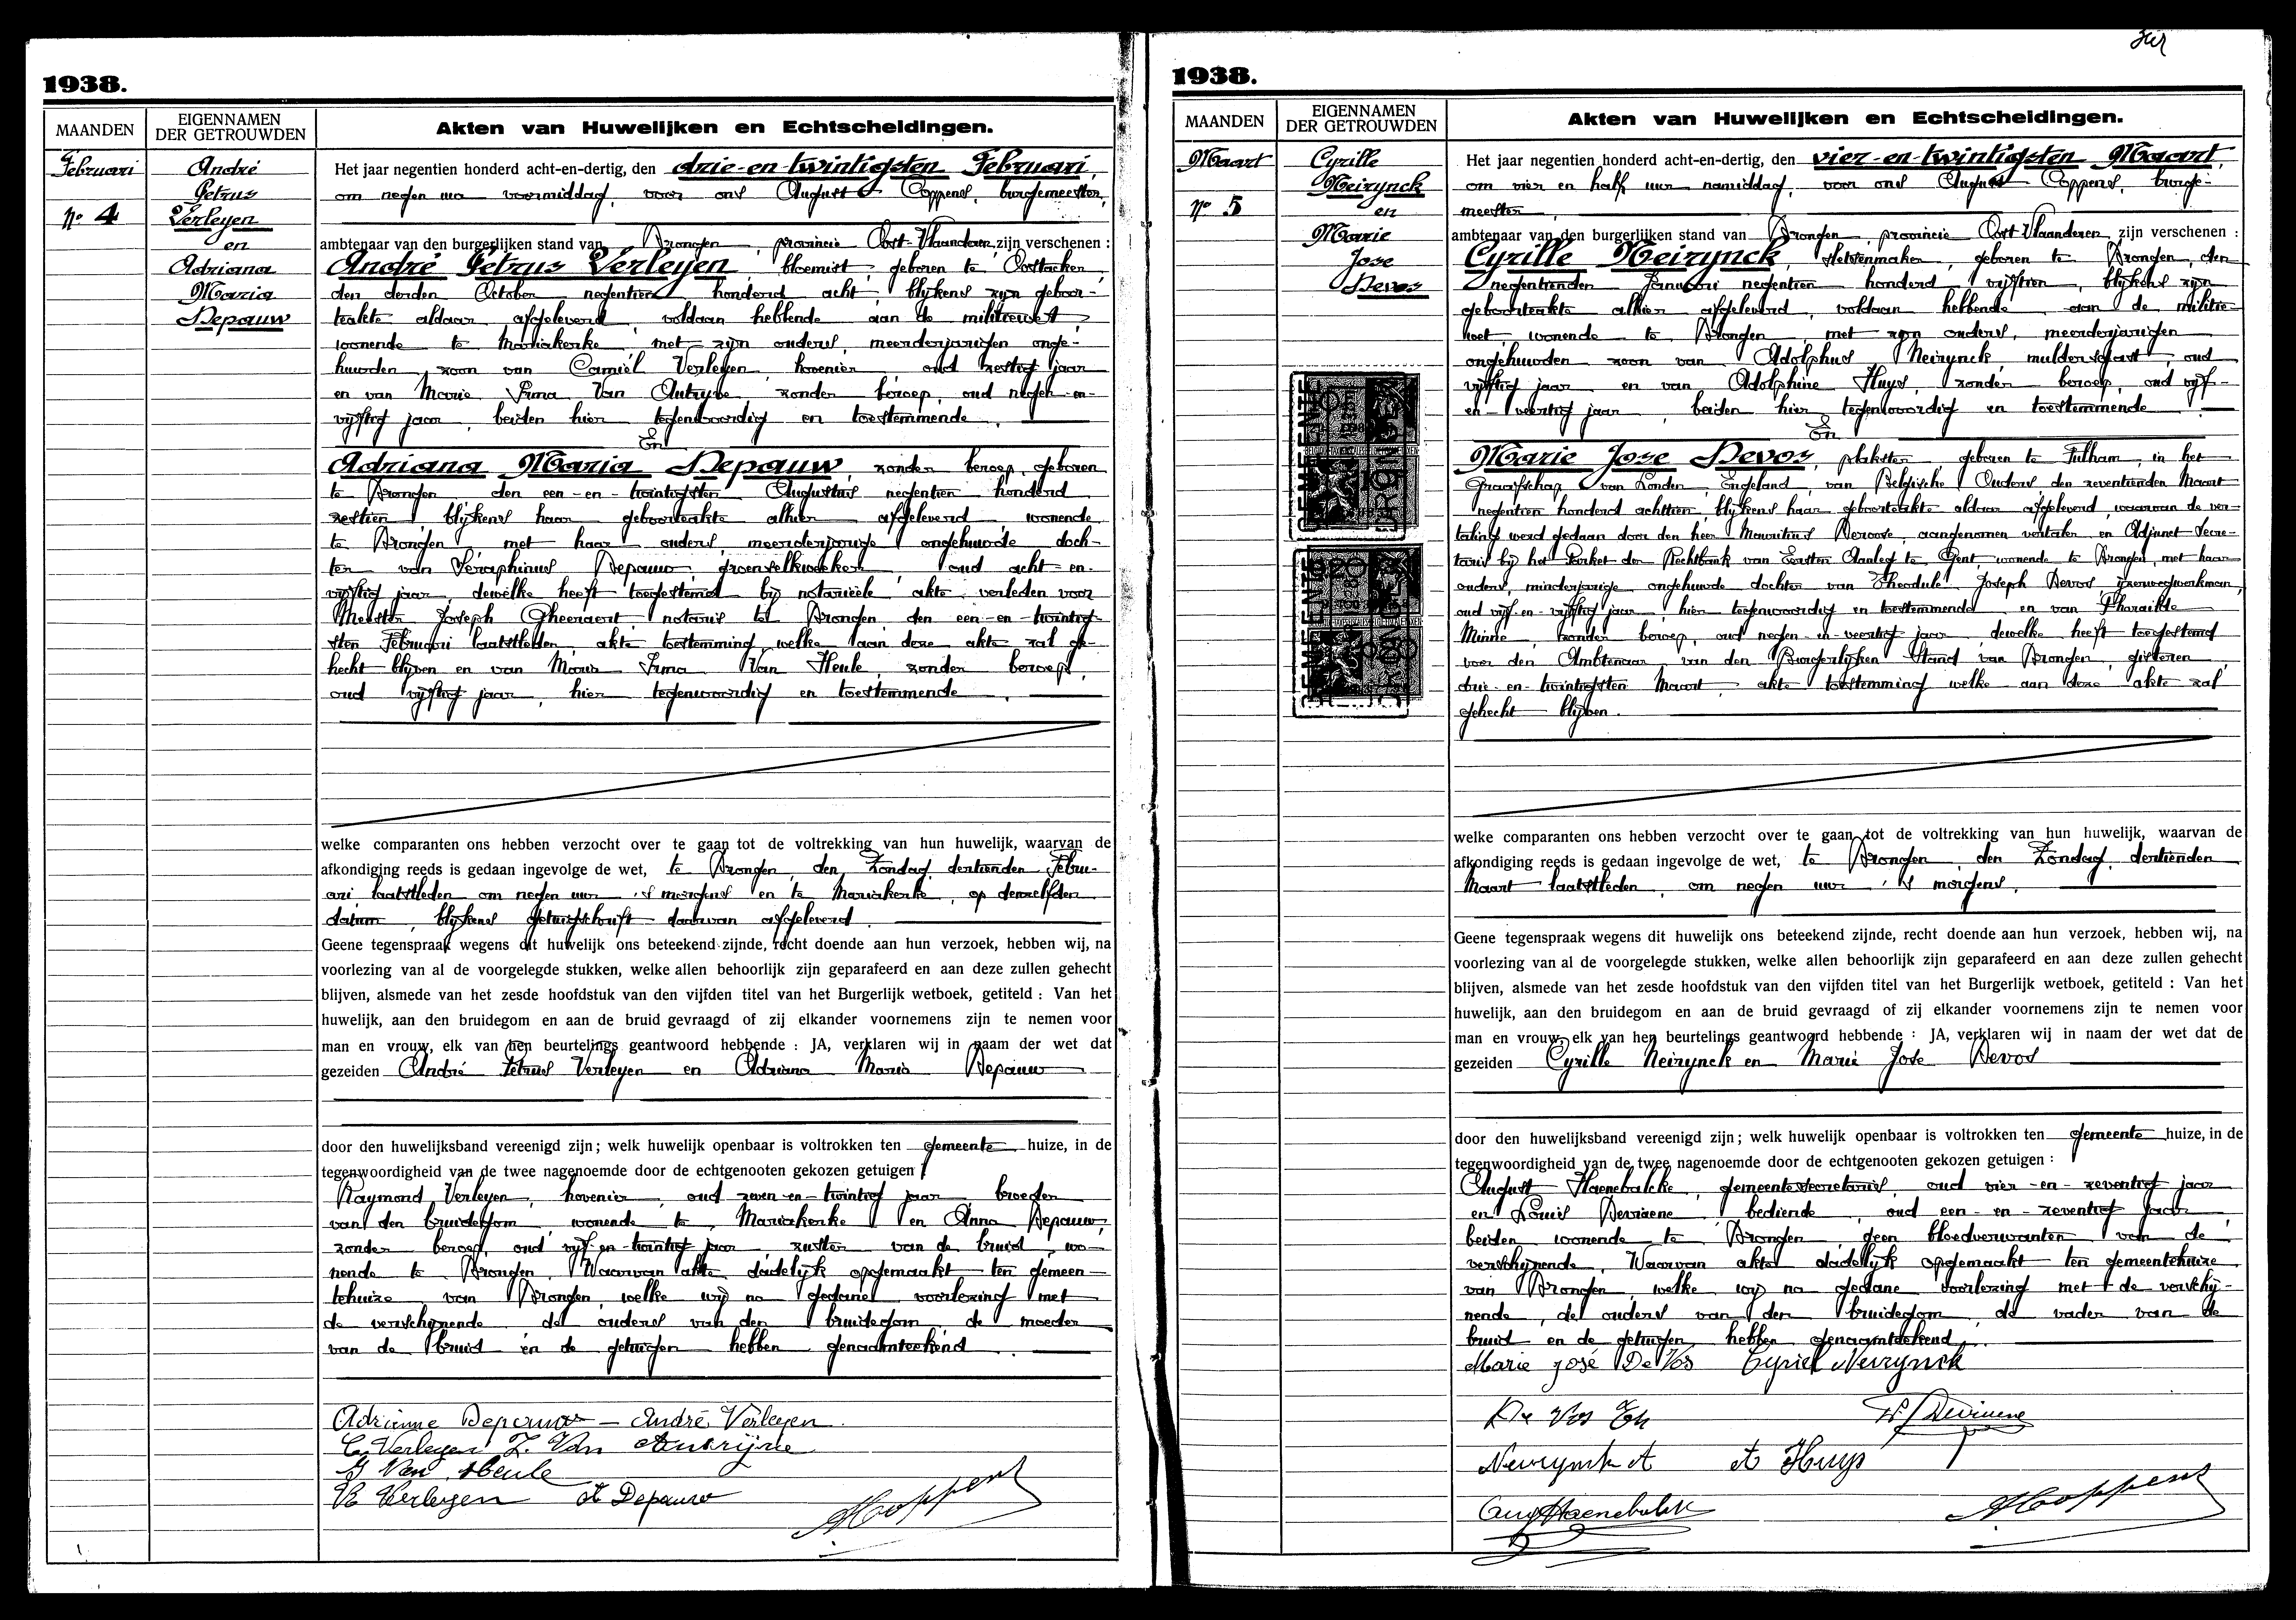 1938.
MAANDEN
EIGENNAMEN
DER GETROUWDEN
Akten van Huwelijken en Echtscheidingen.
Februari
No 4
André
Petrus
Verleyen
en
Adriana
Maria
Depauw
Het jaar negentien honderd acht-en-dertig, den drie-en-twintigsten Februari,
om negen uur voormiddag, voor ons August Coppens, burgemeester,
ambtenaar van den burgerlijken stand van Drongen, provincie Oost-Vlaanderen, zijn verschenen :
André Petrus Verleyen, bloemist, geboren te Oostacker,
den derden October negentien honderd acht, blijkens zijn geboor-
teakte aldaar afgeleverd, voldaan hebbende aan de militiewet,
wonende te Mariakerke, met zijn ouders, meerderjarigen onge-
huwden zoon van Camiel Verleyen, hovenier, oud zestig jaar
en van Marie Irma Van Autryve, zonder beroep, oud negen-en-
vijftig jaar, beiden hier tegenwoordig en toestemmende.
En
Adriana Maria Depauw, zonder beroep, geboren
te Drongen, den een-en-twintigsten Augustus negentien honderd
zestien, blijkens haar geboorteakte alhier afgeleverd, wonende
te Drongen, met haar ouders, meerderjarige ongehuwde doch-
ter van Séraphinus Depauw, groenselkweeker, oud acht-en-
vijftig jaar, dewelke heeft toegestemd bij notarieële akte verleden voor
Meester Joseph Gheeraert, notaris tot Drongen, den een-en-twintig-
sten Februari laatstleden, akte toestemming welke aan deze akte zal ge-
hecht blijven en van Maria Irma Van Heule, zonder beroep,
oud vijftig jaar, hier tegenwoordig en toestemmende.
welke comparanten ons hebben verzocht over te gaan tot de voltrekking van hun huwelijk, waarvan de
afkondiging reeds is gedaan ingevolge de wet, te Drongen, den Zondag, dertienden Febru-
ari laatstleden om negen uur 's morgens en te Mariakerke, op denzelfden
datum, blijkens getuigschrift daarvan afgeleverd.
Geene tegenspraak wegens dit huwelijk ons beteekend zijnde, recht doende aan hun verzoek, hebben wij, na
voorlezing van al de voorgelegde stukken, welke allen behoorlijk zijn geparafeerd en aan deze zullen gehecht
blijven, alsmede van het zesde hoofdstuk van den vijfden titel van het Burgerlijk wetboek, getiteld : Van het
huwelijk, aan den bruidegom en aan de bruid gevraagd of zij elkander voornemens zijn te nemen voor
man en vrouw, elk van hen beurtelings geantwoord hebbende : JA, verklaren wij in naam der wet dat de
gezeiden André Petrus Verleyen en Adriana Maria Depauw
door den huwelijksband vereenigd zijn; welk huwelijk openbaar is voltrokken ten gemeente huize, in de
tegenwoordigheid van de twee nagenoemde door de echtgenooten gekozen getuigen :
Raymond Verleyen, hovenier, oud zeven-en-twintig jaar, broeder
van den bruidegom, wonende te Mariakerke en Anna Depauw,
zonder beroep, oud vijf-en-twintig jaar, zuster van de bruid, wo-
nende te Drongen. Waarvan akte dadelijk opgemaakt ten gemeen-
tehuize van Drongen, welke wij na gedane voorlezing met
de verschijnende, de ouders van den bruidegom, de moeder
van de bruid en de getuigen hebben genaamteekend.
Adrienne Depauw - André Verleyen.
C. Verleyen I. Van Autrijve
I Van Heule
R Verleyen A Depauw
ACoppens
1938.
MAANDEN
EIGENNAMEN
DER GETROUWDEN
Akten van Huwelijken en Echtscheidingen.
Maart
No 5
Cyrille
Neirynck
en
Marie
Jose
Devos
GEMEENTE
DRONGEN
GEMEENTE
DRONGEN
Het jaar negentien honderd acht-en-dertig, den vier-en-twintigsten Maart,
om vier en half uur namiddag, voor ons August Coppens, burge-
meester,
ambtenaar van den burgerlijken stand van Drongen, provincie Oost-Vlaanderen, zijn verschenen :
Cyrille Neirynck, fietsenmaker, geboren te Drongen, den
negentienden Januari negentien honderd vijftien, blijkens zijn
geboorteakte alhier afgeleverd, voldaan hebbende aan de militie-
wet, wonende te Drongen, met zijn ouders, meerderjarigen
ongehuwden zoon van Adolphus Neirynck, muldersgast, oud
vijftig jaar en van Adolphine Huys, zonder beroep, oud vijf-
en-veertig jaar, beiden hier tegenwoordig en toestemmende.
En
Marie Jose Devos, plakster, geboren te Fulham, in het
Graafschap van Londen, Engeland, van Belgische Ouders den zeventienden Maart
negentien honderd achttien, blijkens haar geboorteakte aldaar afgeleverd, waarvan de ver-
taling werd gedaan door den heer Mauritius Deroose, aangenomen vertaler en Adjunct Secre-
taris bij het Parket der Rechtbank van Eersten Aanleg te Gent, wonende te Drongen, met haar
ouders, minderjarige ongehuwde dochter van Theodule Joseph Devos, ijzerwegwerkman,
oud vijf-en-vijftig jaar, hier tegenwoordig en toestemmende en van Pharailde
Minne, zonder beroep, oud negen-en-veertig jaar, dewelke heeft toegestemd
voor den Ambtenaar van den Burgerlijken Stand van Drongen, gisteren,
drie-en-twintigsten Maart, akte toestemming welke aan deze akte zal
gehecht blijven.
welke comparanten ons hebben verzocht over te gaan tot de voltrekking van hun huwelijk, waarvan de
afkondiging reeds is gedaan ingevolge de wet, te Drongen, den Zondag, dertienden
Maart laatstleden, om negen uur 's morgens.
Geene tegenspraak wegens dit huwelijk ons beteekend zijnde, recht doende aan hun verzoek, hebben wij, na
voorlezing van al de voorgelegde stukken, welke allen behoorlijk zijn geparafeerd en aan deze zullen gehecht
blijven, alsmede van het zesde hoofdstuk van den vijfden titel van het Burgerlijk wetboek, getiteld : Van het
huwelijk, aan den bruidegom en aan de bruid gevraagd of zij elkander voornemens zijn te nemen voor
man en vrouw, elk van hen beurtelings geantwoord hebbende : JA, verklaren wij in naam der wet dat de
gezeiden Cyrille Neirynck en Marie Jose Devos
door den huwelijksband vereenigd zijn; welk huwelijk openbaar is voltrokken ten gemeente huize, in de
tegenwoordigheid van de twee nagenoemde door de echtgenooten gekozen getuigen :
August Haenebalcke, gemeentesecretaris, oud vier-en-zeventig jaar
en Louis Deviaene, bediende, oud een-en-zeventig jaar
beiden wonende te Drongen, geen bloedverwanten van de
verschijnende. Waarvan akte dadelijk opgemaakt ten gemeentehuize
van Drongen, welke wij na gedane voorlezing met de verschij-
nende, de ouders van den bruidegom, de vader van de
bruid en de getuigen hebben genaamteekend.
Marie José De Vos Cyriel Neirynck
De Vos Th
Neirynck A A Huys
Aug Haenebalcke
ACoppens